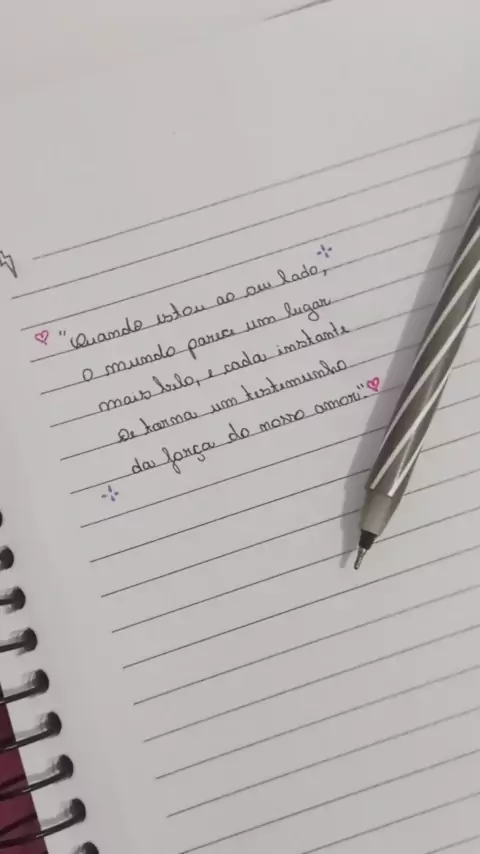 "Quando estou ao seu lado,
o mundo parece um lugar
mais belo, e cada instante
se torna um testemunho
da força do nosso amor."